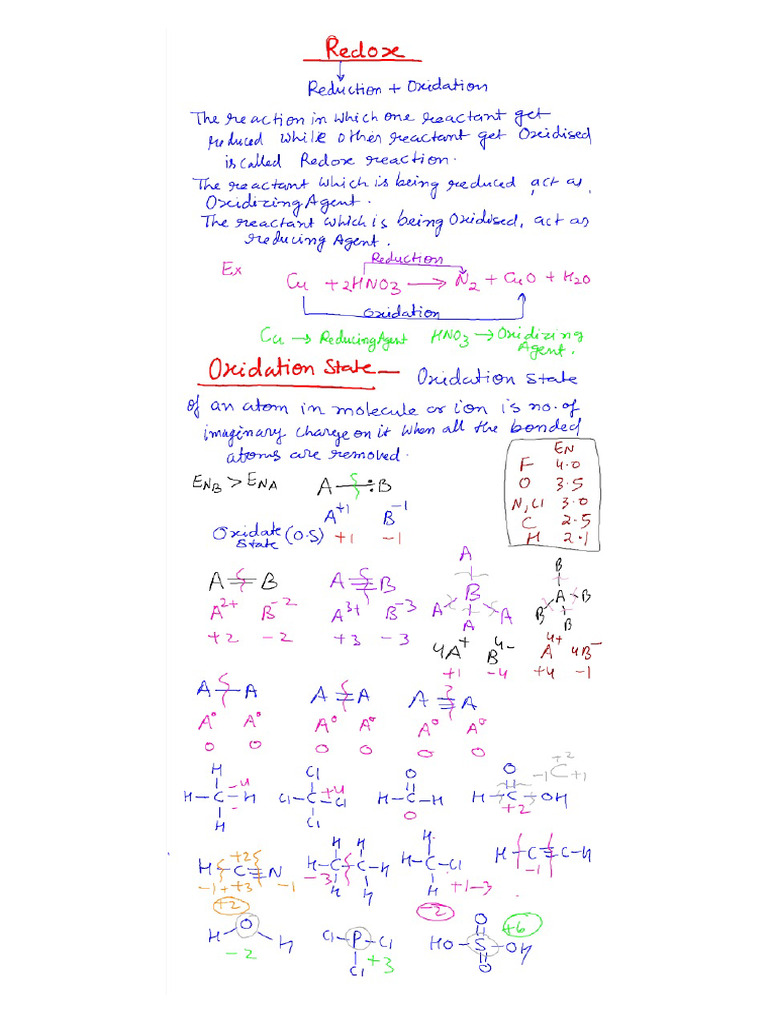 Redox
Reduction + Oxidation
The reaction in which one reactant get
reduced while other reactant get Oxidised
is called Redox reaction.
The reactant which is being reduced, act as
Oxidizing Agent.
The reactant which is being Oxidised, act as
reducing Agent.
Reduction
Ex Cu + 2HNO3 → N2 + CuO + H2O
Oxidation
Cu → Reducing Agent HNO3 → Oxidizing
Agent.
Oxidation State — Oxidation state
of an atom in molecule or ion is no. of
imaginary charge on it when all the bonded
atoms are removed.
EN
F 4.0
O 3.5
N, Cl 3.0
C 2.5
H 2.1
ENB > ENA A — :B
A+1 B-1
Oxidate (O.S) +1 -1
State
A = B A ≡ B A B A A A B A B B B
A2+ B-2 A3+ B-3 4A+ B4- A4+ 4B-
+2 -2 +3 -3 +1 -4 +4 -1
A — A A = A A ≡ A
A0 A0 A0 A0 A0 A0
0 0 0 0 0 0
H Cl O O +2
H — C — H -4 Cl — C — Cl +4 H — C — H H — C — OH -1 C +1
H Cl 0 +2
H — C ≡ N +2 H H H
-1 + +3 -1 H — C — C — H -3 H — C — Cl H — C ≡ C — H -1
+2 H H H +1 -3
-2
H O H Cl — P — Cl HO — S — OH +6
-2 Cl +3 O O